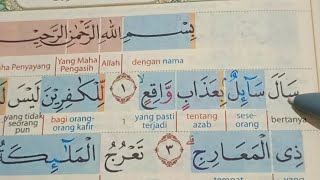 بِسْمِ اللّٰهِ الرَّحْمٰنِ الرَّحِيْمِ
dengan nama Allah Yang Maha Pengasih Maha Penyayang
سَاَلَ سَاۤىِٕلٌۢ بِعَذَابٍ وَّاقِعٍۙ ١ لِّلْكٰفِرِيْنَ لَيْسَ
bertanya sese-orang tentang azab yang pasti terjadi 1 bagi orang-orang kafir yang tidak seorang pun
ذِى الْمَعَارِجِۗ ٣ تَعْرُجُ الْمَلٰۤىِٕكَةُ
tempat yang